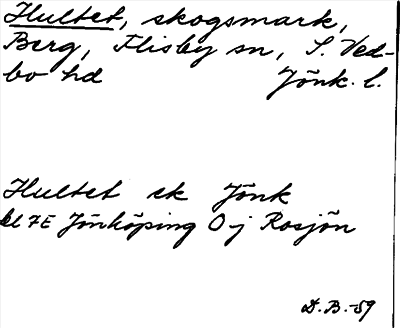 Hultet, skogsmark,
Berg, Flisby sn, S. Ved-
bo hd Jönk. l.
Hultet sk Jönk
bl 7E Jönköping O-j Rosjön
D.B.-59